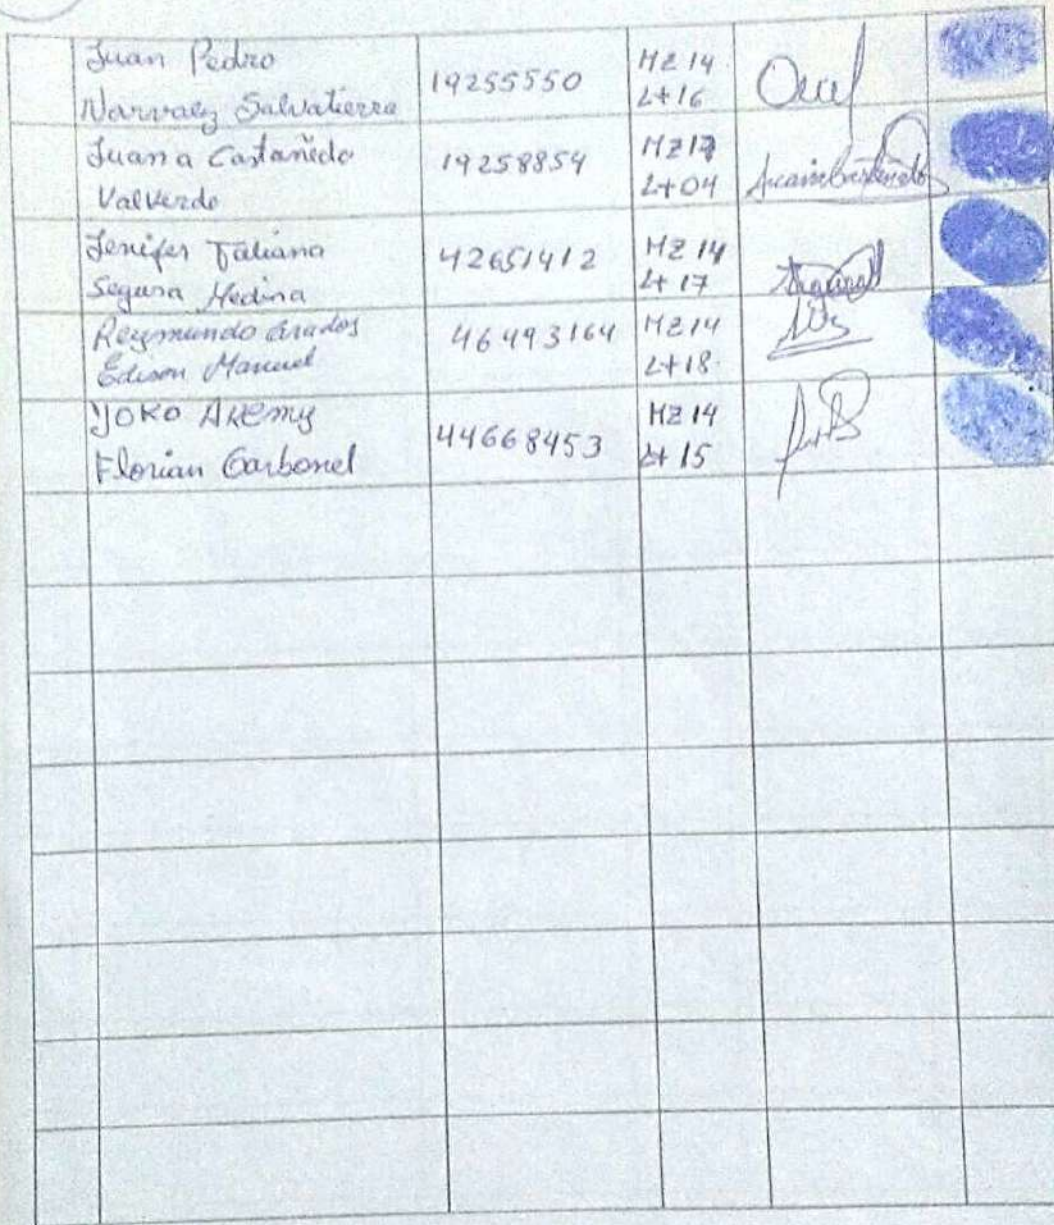 Juan Pedro
Narvaez Salvatierra
19255550
MZ 14
Lt 16
Juana Castañedo
Valverde
19258854
MZ 17
Lt 04
Jenifer Tatiana
Segura Medina
42651412
MZ 14
Lt 17
Reymundo
Edison Manuel
46493164
MZ 14
Lt 18
YOKO AKEMY
Florian Carbonel
44668453
MZ 14
Lt 15